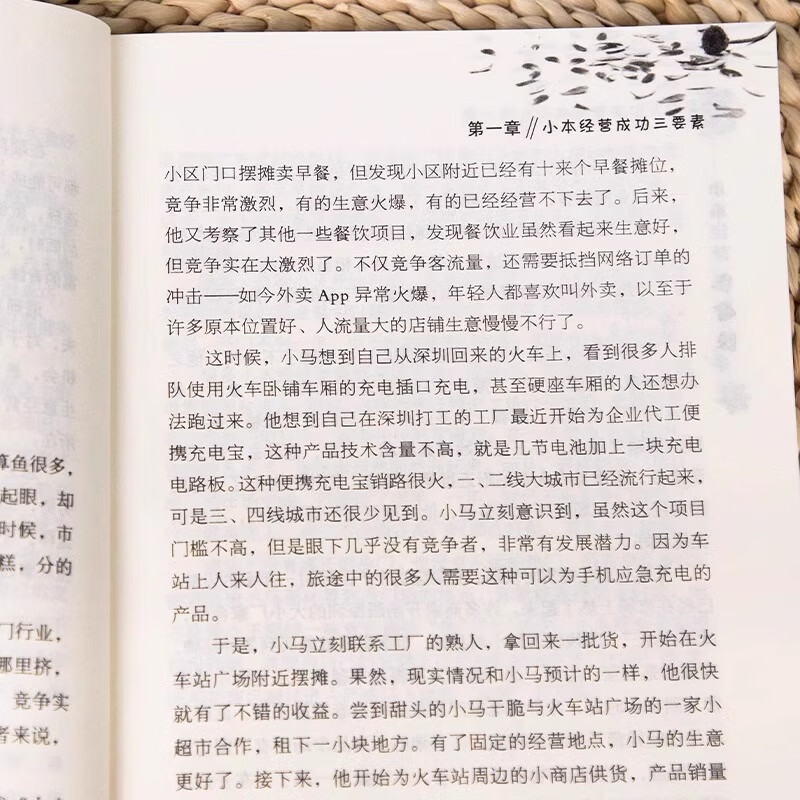 算鱼很多,
起眼，却
时候，市
糕，分的
门行业，
那里挤，
竞争实
者来说，
第一章//小本经营成功三要素
小区门口摆摊卖早餐，但发现小区附近已经有十来个早餐摊位，
竞争非常激烈，有的生意火爆，有的已经经营不下去了。后来，
他又考察了其他一些餐饮项目，发现餐饮业虽然看起来生意好，
但竞争实在太激烈了。不仅竞争客流量，还需要抵挡网络订单的
冲击——如今外卖 App 异常火爆，年轻人都喜欢叫外卖，以至于
许多原本位置好、人流量大的店铺生意慢慢不行了。
这时候，小马想到自己从深圳回来的火车上，看到很多人排
队使用火车卧铺车厢的充电插口充电，甚至硬座车厢的人还想办
法跑过来。他想到自己在深圳打工的工厂最近开始为企业代工便
携充电宝，这种产品技术含量不高，就是几节电池加上一块充电
电路板。这种便携充电宝销路很火，一、二线大城市已经流行起来，
可是三、四线城市还很少见到。小马立刻意识到，虽然这个项目
门槛不高，但是眼下几乎没有竞争者，非常有发展潜力。因为车
站上人来人往，旅途中的很多人需要这种可以为手机应急充电的
产品。
于是，小马立刻联系工厂的熟人，拿回来一批货，开始在火
车站广场附近摆摊。果然，现实情况和小马预计的一样，他很快
就有了不错的收益。尝到甜头的小马干脆与火车站广场的一家小
超市合作，租下一小块地方。有了固定的经营地点，小马的生意
更好了。接下来，他开始为火车站周边的小商店供货，产品销量